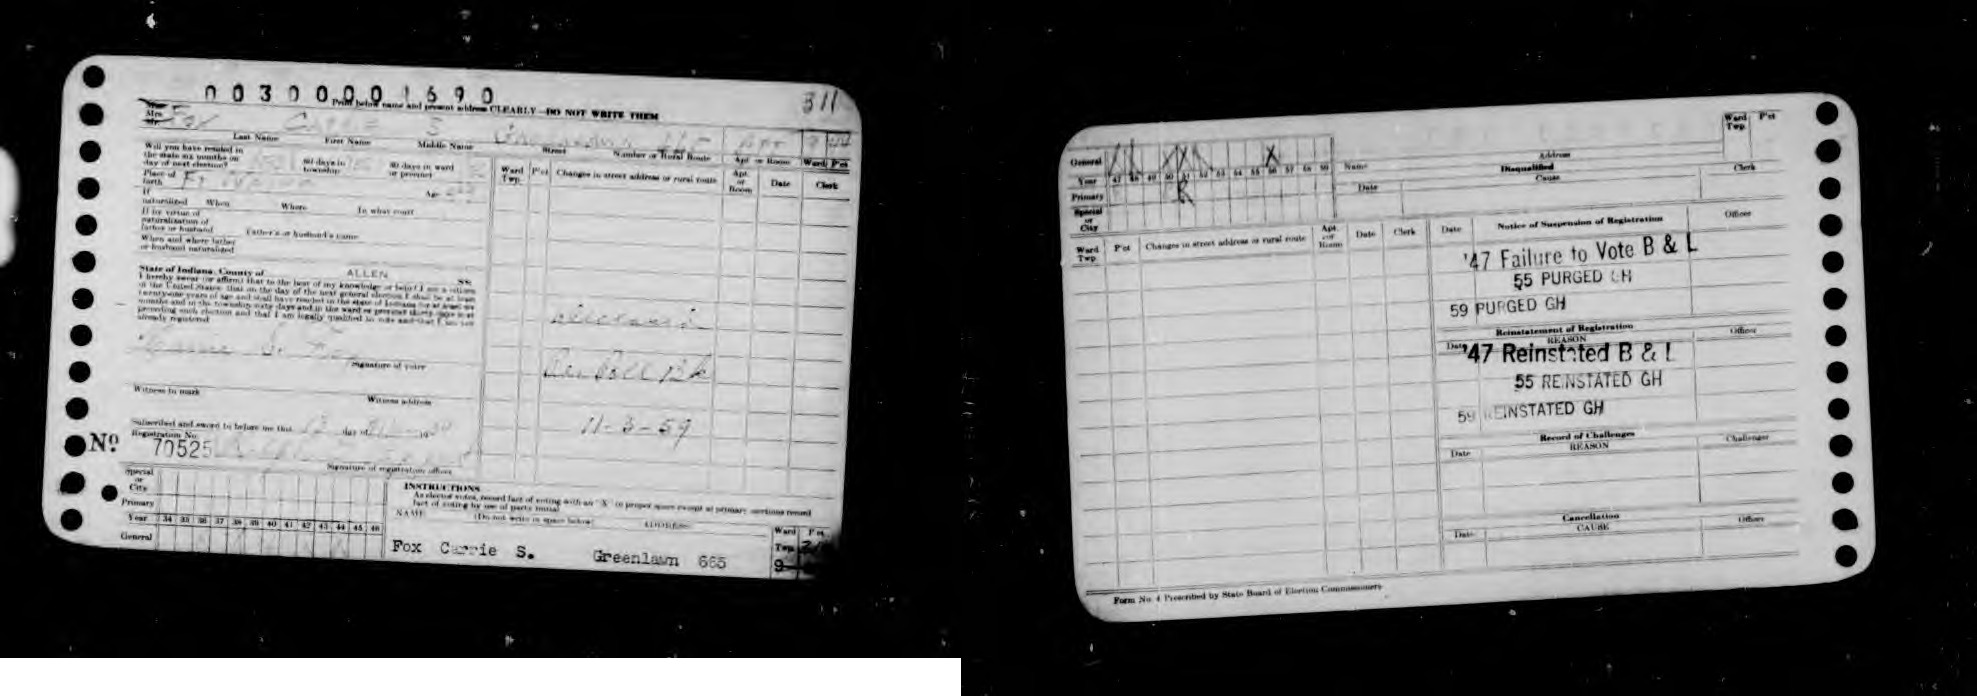 0030000 1690
311
Print below name and present address CLEARLY—DO NOT WRITE THEM
Mrs.
Mr.
Fox Carrie S
Last Name First Name Middle Name Street Number or Rural Route Apt. or Room Ward P'ct
Will you have resided in
the state six months on
day of next election?
60 days in
township
30 days in ward
or precinct
Place of
birth Ft Wayne Age
If
naturalized When Where In what court
If by virtue of
naturalization of
father or husband Father's or husband's name
When and where father
or husband naturalized
State of Indiana, County of ALLEN SS:
I hereby swear (or affirm) that to the best of my knowledge or belief I am a citizen
of the United States; that on the day of the next general election I shall be at least
twenty-one years of age and shall have resided in the state of Indiana for at least six
months and in the township sixty days and in the ward or precinct thirty days next
preceding such election and that I am legally qualified to vote and that I am not
already registered
Signature of voter
Witness to mark Witness address
Subscribed and sworn to before me this day of 19
Registration No.
Nº 70525
Signature of registration officer
Ward
Twp. P'ct Changes in street address or rural route Apt.
or
Room Date Clerk
Deceased
11-3-59
Special
or
City
Primary
Year 34 35 36 37 38 39 40 41 42 43 44 45 46
General
INSTRUCTIONS
As elector votes, record fact of voting with an "X" in proper space except at primary elections record
fact of voting by use of party initial
NAME (Do not write in space below) ADDRESS
Ward P'ct
Twp.
Fox Carrie S. Greenlawn 665
9
General
Year 47 48 49 50 51 52 53 54 55 56 57 58 59
Primary R
Special
or
City
Ward
Twp. P'ct
Name Address
Disqualified
Date Cause Clerk
Ward
Twp. P'ct Changes in street address or rural route Apt.
or
Room Date Clerk
Date Notice of Suspension of Registration Officer
'47 Failure to Vote B & L
55 PURGED GH
59 PURGED GH
Reinstatement of Registration
Date REASON Officer
'47 Reinstated B & L
55 REINSTATED GH
59 REINSTATED GH
Record of Challenges
Date REASON Challenger
Cancellation
Date CAUSE Officer
Form No. 4 Prescribed by State Board of Election Commissioners